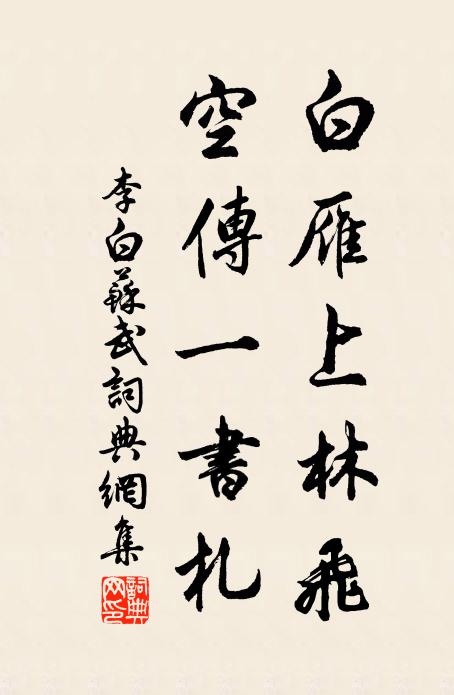 白雁上林飛
空傳一書札
李白蘇武詞典網集
詞典
网印